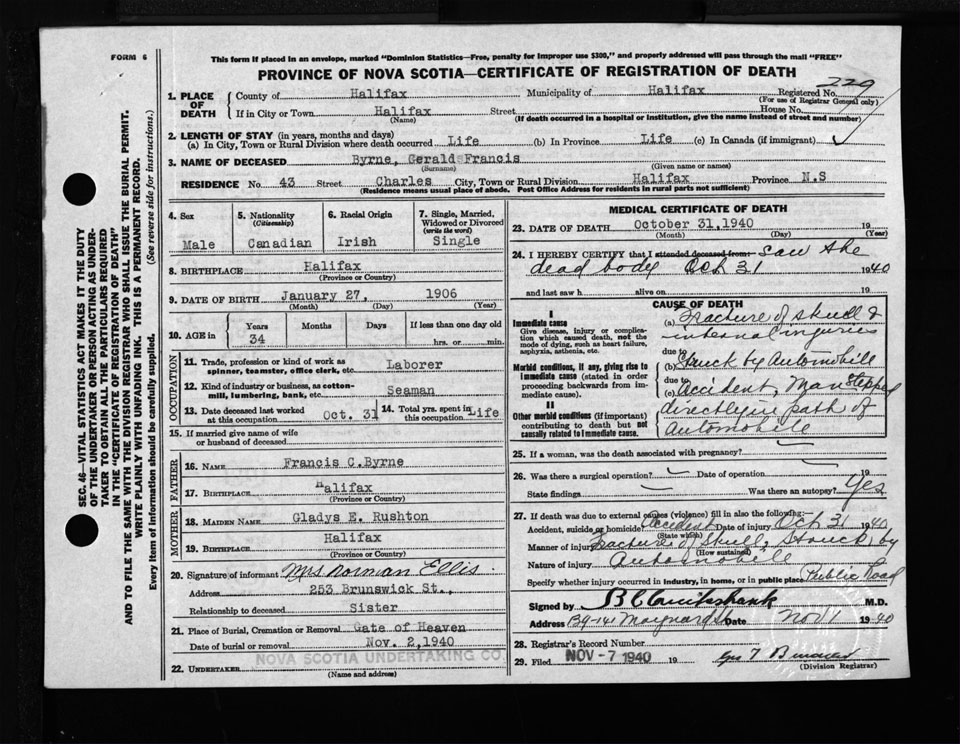 FORM 6
This form if placed in an envelope, marked "Dominion Statistics—Free, penalty for improper use $300," and properly addressed will pass through the mail "FREE"
PROVINCE OF NOVA SCOTIA—CERTIFICATE OF REGISTRATION OF DEATH
1. PLACE OF DEATH { County of Halifax Municipality of Halifax Registered No. 229
(For use of Registrar General only)
If in City or Town Halifax Street House No.
(Name) (If death occurred in a hospital or institution, give name instead of street and number)
2. LENGTH OF STAY (in years, months and days)
(a) In City, Town or Rural Division where death occurred Life (b) In Province Life (c) In Canada (if immigrant)
3. NAME OF DECEASED Byrne, Gerald Francis
(Surname) (Given name or names)
RESIDENCE No. 43 Street Charles City, Town or Rural Division Halifax Province N.S
(Residence means usual place of abode. Post Office Address for residents in rural parts not sufficient)
4. Sex Male
5. Nationality (Citizenship) Canadian
6. Racial Origin Irish
7. Single, Married, Widowed or Divorced (write the word) Single
8. BIRTHPLACE Halifax
(Province or Country)
9. DATE OF BIRTH January 27, 1906
(Month) (Day) (Year)
10. AGE in { Years Months Days If less than one day old
34 hrs. or min.
OCCUPATION
11. Trade, profession or kind of work as spinner, teamster, office clerk, etc. Laborer
12. Kind of industry or business, as cotton-mill, lumbering, bank, etc. Seaman
13. Date deceased last worked at this occupation Oct. 31
14. Total yrs. spent in this occupation Life
15. If married give name of wife or husband of deceased
FATHER
16. NAME Francis C.Byrne
17. BIRTHPLACE Halifax
(Province or Country)
MOTHER
18. MAIDEN NAME Gladys E. Rushton
19. BIRTHPLACE Halifax
(Province or Country)
20. Signature of informant Mrs Norman Ellis.
Address 253 Brunswick St.,
Relationship to deceased Sister
21. Place of Burial, Cremation or Removal Gate of Heaven
Date of burial or removal Nov. 2,1940
22. UNDERTAKER NOVA SCOTIA UNDERTAKING CO.
(Name and address)
MEDICAL CERTIFICATE OF DEATH
23. DATE OF DEATH October 31,1940 19
(Month) (Day) (Year)
24. I HEREBY CERTIFY that I attended deceased from Saw the
dead body Oct 31 1940
and last saw h alive on 19
CAUSE OF DEATH
I
Immediate cause
Give disease, injury or complication which caused death, not the mode of dying, such as heart failure, asphyxia, asthenia, etc.
(a) Fracture of skull &
internal injuries
due to
Morbid conditions, if any, giving rise to immediate cause (stated in order proceeding backwards from immediate).
(b) Struck by Automobile
due to
(c) Accident, Man Stepped
II
Other morbid conditions (if important) contributing to death but not causally related to immediate cause.
directly in path of
Automobile
25. If a woman, was the death associated with pregnancy?
26. Was there a surgical operation? Date of operation 19
State findings Was there an autopsy? Yes
27. If death was due to external causes (violence) fill in also the following:—
Accident, suicide or homicide? Accident Date of injury Oct 31 1940
(State which)
Manner of injury Fracture of Skull, Struck by
(How sustained)
Nature of injury Automobile
Specify whether injury occurred in industry, in home, or in public place Public Road
Signed by M.D.
Address 139-141 Maynard St Date Nov 1 1940
28. Registrar's Record Number
29. Filed NOV - 7 1940 19
(Division Registrar)
SEC. 46—VITAL STATISTICS ACT MAKES IT THE DUTY
OF THE UNDERTAKER OR PERSON ACTING AS UNDER-
TAKER TO OBTAIN ALL THE PARTICULARS REQUIRED
IN THE "CERTIFICATE OF REGISTRATION OF DEATH"
AND TO FILE THE SAME WITH THE DIVISION REGISTRAR WHO SHALL ISSUE THE BURIAL PERMIT.
WRITE PLAINLY WITH UNFADING INK. THIS IS A PERMANENT RECORD.
Every item of information should be carefully supplied. (See reverse side for instructions.)